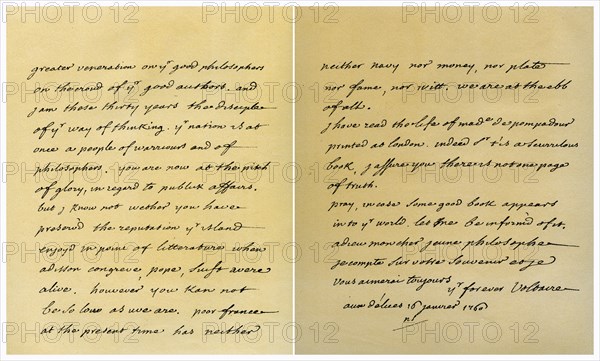 greater veneration on yr good philosophers
on the croud of yr good authors. and
j am these thirty years the disciple
of yr way of thinking. yr nation is at
once a people of warriours and off
philosophers. you are now at the pitch
of glory, in regard to publick affairs.
but j know not wether you have
preserv'd the reputation yr island
enjoy'd in point of litterature when
adisson congreve pope, suift were
alive. however you kan not
be so low as we are. poor france
at the present time has neither
neither navy nor money, nor plate
nor fame, nor witt. we are at the ebb
of all.
j have read the life of made de pompadour
printed at london. indeed sr t'is a scurrulous
book. j assure you there is not one page
of truth.
pray, in case some good book appears
in to yr world. let me be inform'd of it.
adieu mon cher jeune philosophe
je compte sur votre souvenir et je
vous aimerai toujours
yr forever Voltaire
aux délices 16 janvier 1760